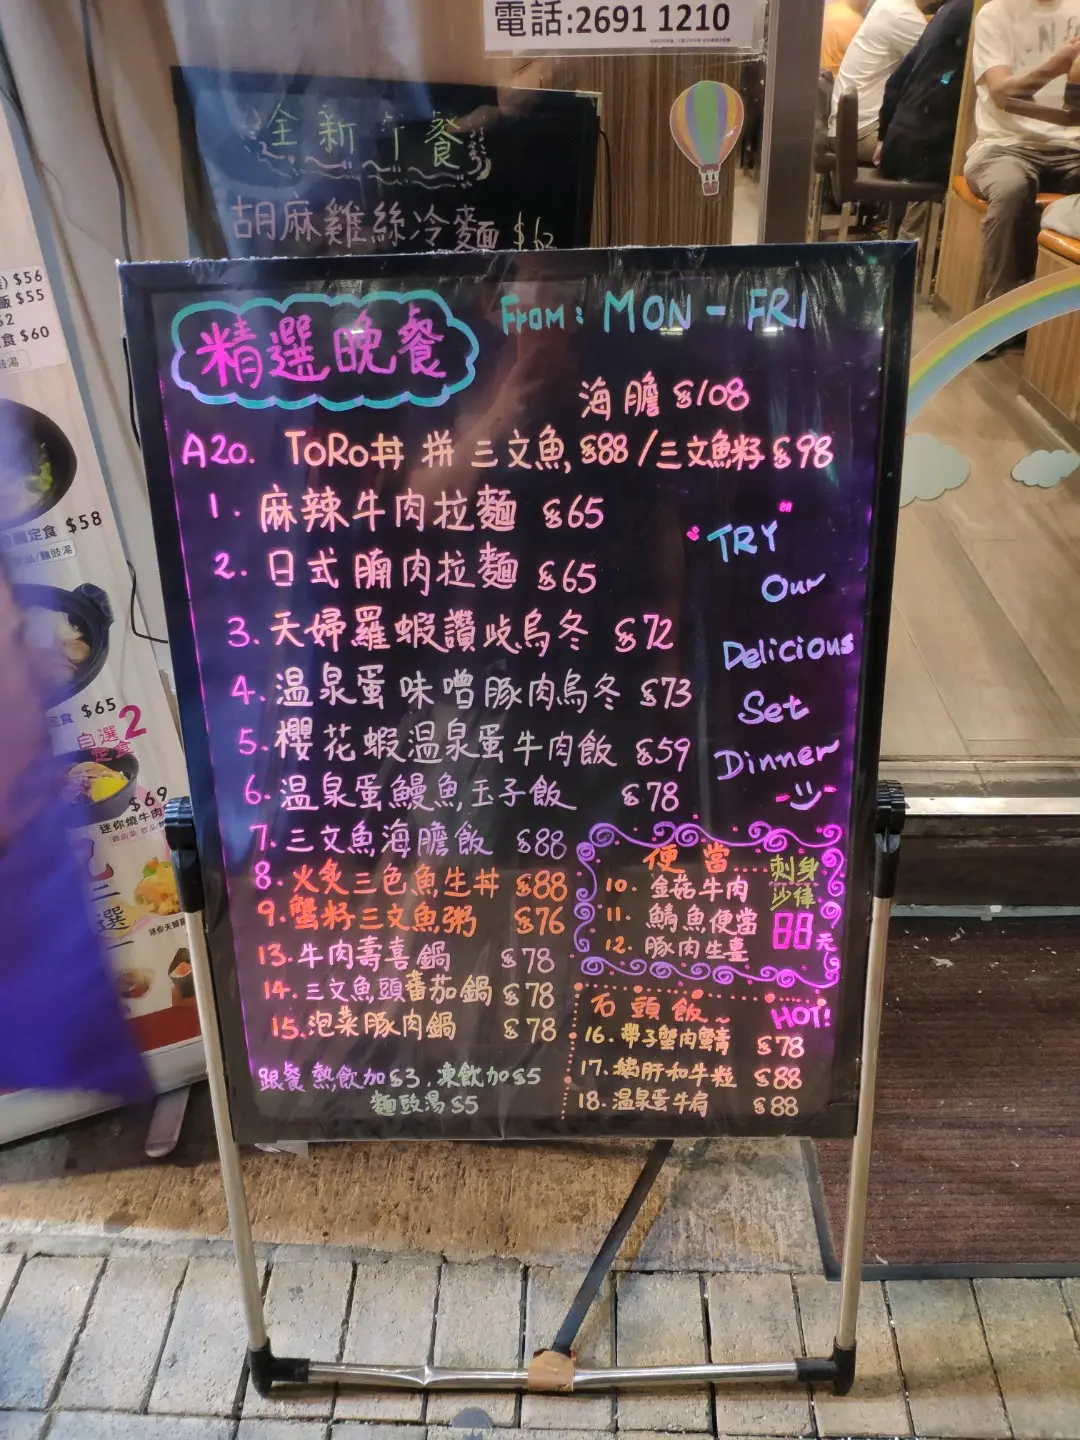 電話:2691 1210
全新下餐
胡麻雞絲冷麵 $62
$56
飯 $55
食 $60
定食 $58
定食 $65
自選2
定食
$69
迷你燒牛肉
選
精選晚餐
From: MON - FRI
海膽 $108
A20. ToRo丼 拼 三文魚, $88 / 三文魚籽 $98
1. 麻辣牛肉拉麵 $65
2. 日式腩肉拉麵 $65
3. 天婦羅蝦讚歧烏冬 $72
4. 温泉蛋味噌豚肉烏冬 $73
5. 櫻花蝦温泉蛋牛肉飯 $59
6. 温泉蛋鰻魚玉子飯 $78
7. 三文魚海膽飯 $88
8. 火炙三色魚生丼 $88
9. 蟹籽三文魚粥 $76
13. 牛肉壽喜鍋 $78
14. 三文魚頭蕃茄鍋 $78
15. 泡菜豚肉鍋 $78
跟餐 熱飲加$3, 凍飲加$5
麵豉湯 $5
TRY
Our
Delicious
Set
Dinner
便當
刺身
沙律
10. 金菇牛肉
11. 鯖魚便當
12. 豚肉生薑
88元
石頭飯~
HOT!
16. 帶子蟹肉蟹膏 $78
17. 鵝肝和牛粒 $88
18. 温泉蛋牛肩 $88